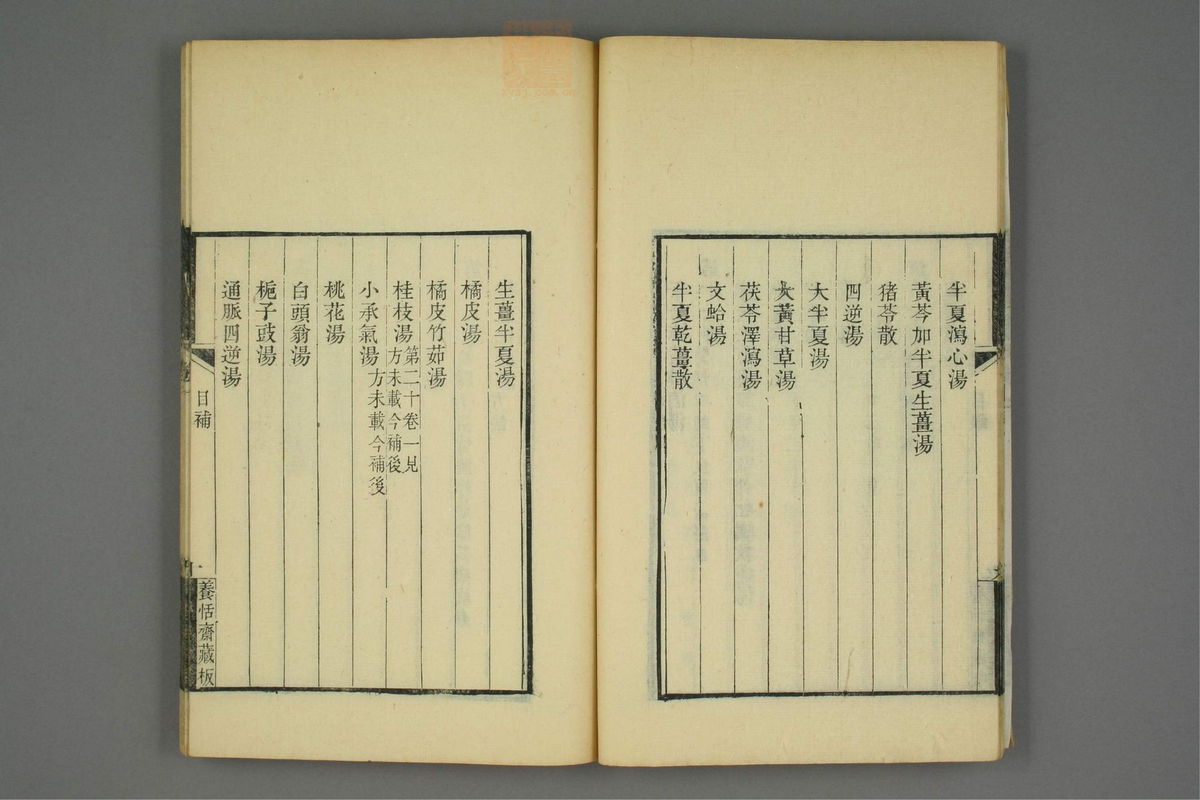 半夏瀉心湯
黃芩加半夏生薑湯
猪苓散
四逆湯
大半夏湯
大黃甘草湯
茯苓澤瀉湯
文蛤湯
半夏乾薑散
生薑半夏湯
橘皮湯
橘皮竹茹湯
桂枝湯第二十卷一見方未載今補後
小承氣湯方未載今補後
桃花湯
白頭翁湯
栀子豉湯
通脈四逆湯
目補
養恬齋藏板